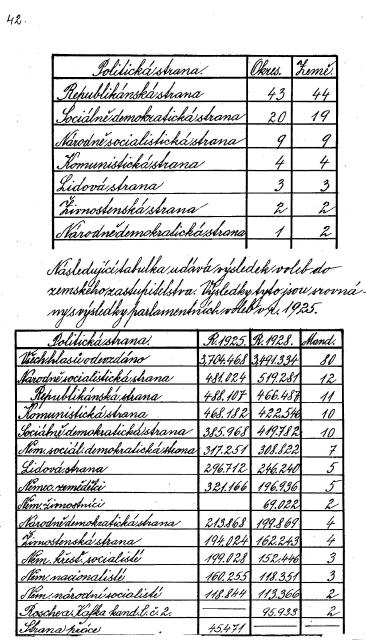 42.
Politická strana. Okres. Země.
Republikánská strana 43 44
Sociálně demokratická strana 20 19
Národně socialistická strana 9 9
Komunistická strana 4 4
Lidová strana 3 3
Živnostenská strana 2 2
Národně demokratická strana 1 2
Následující tabulka udává výsledek voleb do
zemského zastupitelstva. Výsledky tyto jsou srovná-
ny s výsledky parlamentních voleb v r. 1925.
Politická strana. R. 1925. R. 1928. Mand.
Všech hlasů odevzdáno 3,704.468 3,491.334 80
Národně socialistická strana 481.024 519.281 12
Republikánská strana 488.107 466.487 11
Komunistická strana 468.182 422.546 10
Sociálně demokratická strana 385.968 419.782 10
Něm. sociál. demokratická strana 317.251 308.822 7
Lidová strana 296.712 246.240 5
Němec. zemědělci 321.166 196.936 5
Něm. živnostníci 69.022 2
Národně demokratická strana 213.868 199.869 4
Živnostenská strana 194.024 162.243 4
Něm. křesť. socialisté 199.028 152.446 3
Něm. nacionalisté 160.255 118.351 3
Něm. národní socialité 118.844 113.366 2
Rosche a Kafka kand. l. č. 2. 95.933 2
Strana práce 45.471